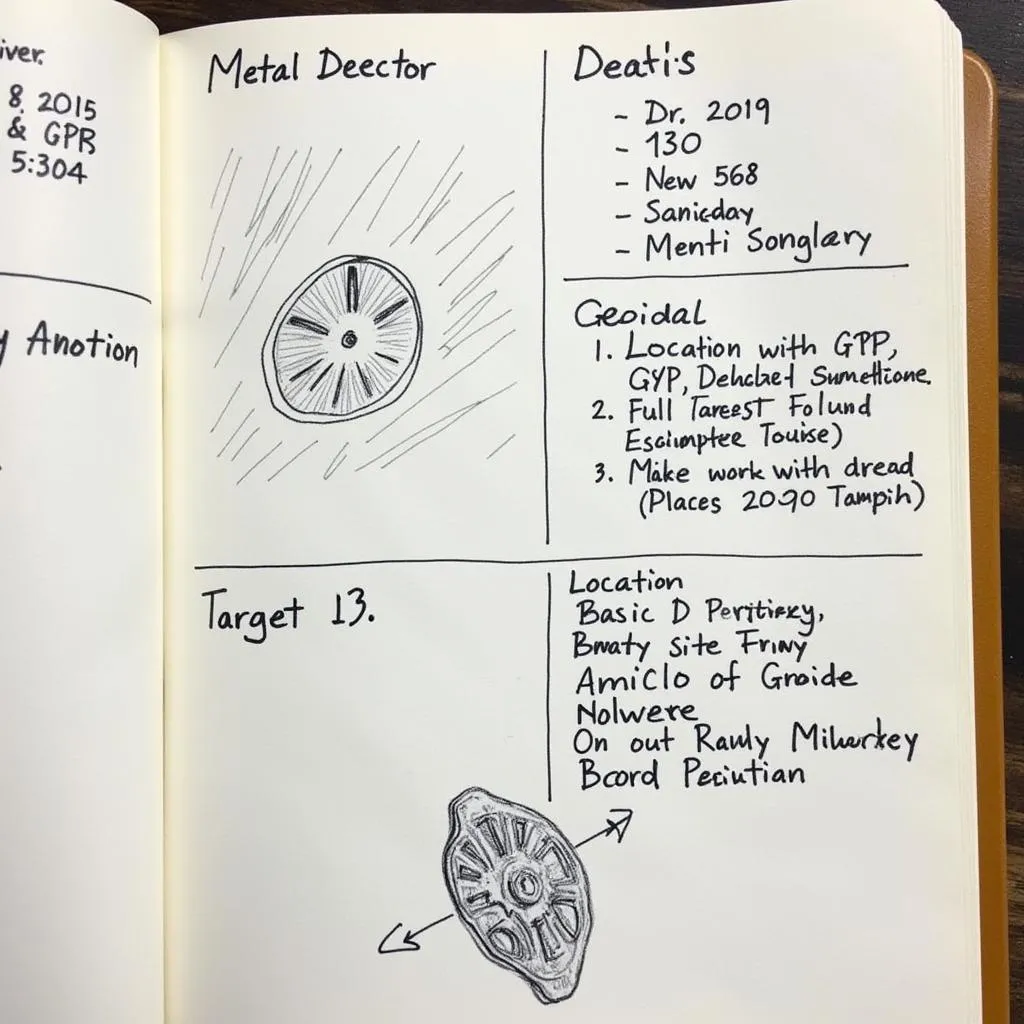 iver.
8. 2015
& GPR
5:304
y Anotion
Metal Deector
Deati's
- Dr. 2019
- 130
- New 568
- Sanicday
- Menti Songlary
Geoidal
1. Location with GPP,
GYP, Dehclset Sumethione.
2. Full Tareest Folund
Esciimptee Touise)
3. Make work with dread
(Places 2090 Tampih)
Target 13.
Location
Basic D
Bmaty Site Friny
Amiclo of Groide
Nolwere
On out Rauly
Bcord Peciutian